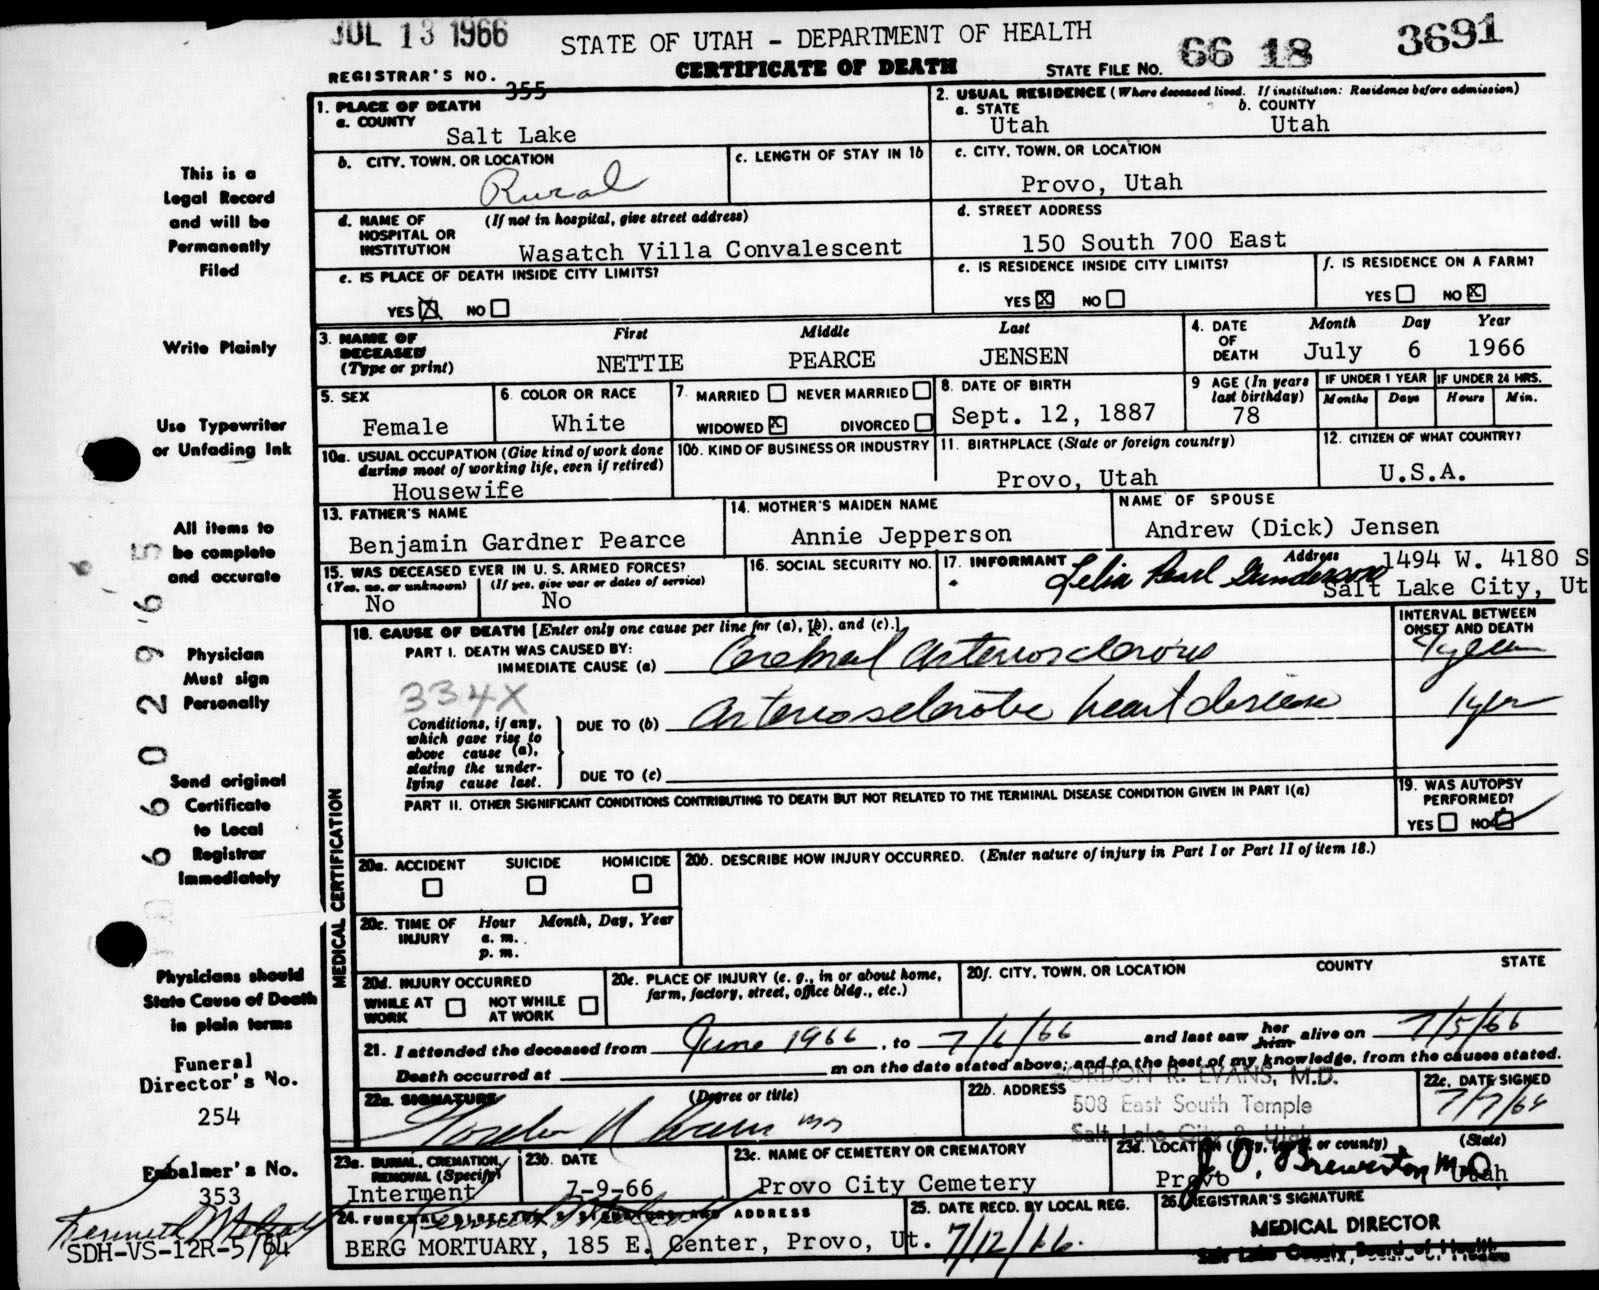 JUL 13 1966
STATE OF UTAH - DEPARTMENT OF HEALTH
66 18 3691
REGISTRAR'S NO. 355
CERTIFICATE OF DEATH
STATE FILE NO.
1. PLACE OF DEATH
a. COUNTY
Salt Lake
2. USUAL RESIDENCE (Where deceased lived. If institution: Residence before admission)
a. STATE
Utah
b. COUNTY
Utah
b. CITY, TOWN, OR LOCATION
Rural
c. LENGTH OF STAY IN 1b
c. CITY, TOWN, OR LOCATION
Provo, Utah
d. NAME OF HOSPITAL OR INSTITUTION
(If not in hospital, give street address)
Wasatch Villa Convalescent
d. STREET ADDRESS
150 South 700 East
e. IS PLACE OF DEATH INSIDE CITY LIMITS?
YES X NO
e. IS RESIDENCE INSIDE CITY LIMITS?
YES X NO
f. IS RESIDENCE ON A FARM?
YES NO X
3. NAME OF DECEASED (Type or print)
First Middle Last
NETTIE PEARCE JENSEN
4. DATE OF DEATH
Month Day Year
July 6 1966
5. SEX
Female
6. COLOR OR RACE
White
7. MARRIED NEVER MARRIED
WIDOWED X DIVORCED
8. DATE OF BIRTH
Sept. 12, 1887
9 AGE (In years last birthday)
78
IF UNDER 1 YEAR
Months Days
IF UNDER 24 HRS.
Hours Min.
10a. USUAL OCCUPATION (Give kind of work done during most of working life, even if retired)
Housewife
10b. KIND OF BUSINESS OR INDUSTRY
11. BIRTHPLACE (State or foreign country)
Provo, Utah
12. CITIZEN OF WHAT COUNTRY?
U.S.A.
13. FATHER'S NAME
Benjamin Gardner Pearce
14. MOTHER'S MAIDEN NAME
Annie Jepperson
NAME OF SPOUSE
Andrew (Dick) Jensen
15. WAS DECEASED EVER IN U. S. ARMED FORCES?
(Yes, no, or unknown)
No
(If yes, give war or dates of service)
No
16. SOCIAL SECURITY NO.
17. INFORMANT
Lelia Pearl Gunderson
Address
1494 W. 4180 S
Salt Lake City, Ut
18. CAUSE OF DEATH [Enter only one cause per line for (a), (b), and (c).]
INTERVAL BETWEEN ONSET AND DEATH
PART I. DEATH WAS CAUSED BY:
IMMEDIATE CAUSE (a) Cerebral arteriosclerosis
334X
Conditions, if any, which gave rise to above cause (a), stating the underlying cause last.
DUE TO (b) arteriosclerotic heart disease
DUE TO (c)
PART II. OTHER SIGNIFICANT CONDITIONS CONTRIBUTING TO DEATH BUT NOT RELATED TO THE TERMINAL DISEASE CONDITION GIVEN IN PART I(a)
19. WAS AUTOPSY PERFORMED?
YES NO
MEDICAL CERTIFICATION
20a. ACCIDENT SUICIDE HOMICIDE
20b. DESCRIBE HOW INJURY OCCURRED. (Enter nature of injury in Part I or Part II of item 18.)
20c. TIME OF INJURY
Hour Month, Day, Year
a. m.
p. m.
20d. INJURY OCCURRED
WHILE AT WORK
NOT WHILE AT WORK
20e. PLACE OF INJURY (e. g., in or about home, farm, factory, street, office bldg., etc.)
20f. CITY, TOWN, OR LOCATION COUNTY STATE
21. I attended the deceased from June 1966, to 7/6/66 and last saw her him alive on 7/5/66
Death occurred at m on the date stated above; and to the best of my knowledge, from the causes stated.
22a. SIGNATURE (Degree or title)
Gordon R Evans MD
22b. ADDRESS
GORDON R. EVANS, M.D.
508 East South Temple
Salt Lake City 2, Utah
22c. DATE SIGNED
7/7/66
23a. BURIAL, CREMATION, REMOVAL (Specify)
Interment
23b. DATE
7-9-66
23c. NAME OF CEMETERY OR CREMATORY
Provo City Cemetery
23d. LOCATION (City, town, or county) (State)
Provo Utah
24. FUNERAL DIRECTOR'S SIGNATURE AND ADDRESS
BERG MORTUARY, 185 E. Center, Provo, Ut.
25. DATE RECD. BY LOCAL REG.
7/12/66.
26. REGISTRAR'S SIGNATURE
J. O. Brewerton M.D.
MEDICAL DIRECTOR
Salt Lake County Board of Health
This is a
Legal Record
and will be
Permanently
Filed
Write Plainly
Use Typewriter
or Unfading Ink
All items to
be complete
and accurate
Physician
Must sign
Personally
Send original
Certificate
to Local
Registrar
Immediately
Physicians should
State Cause of Death
in plain terms
Funeral
Director's No.
254
Embalmer's No.
353
SDH-VS-12R-5/64
6602965